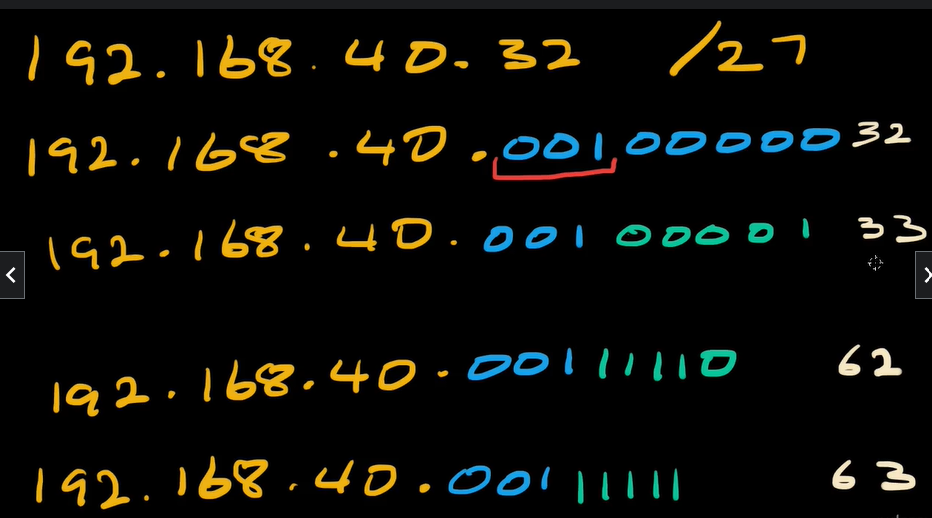 192.168.40.32 /27
192.168.40.00100000 32
192.168.40.00100001 33
192.168.40.00111110 62
192.168.40.00111111 63